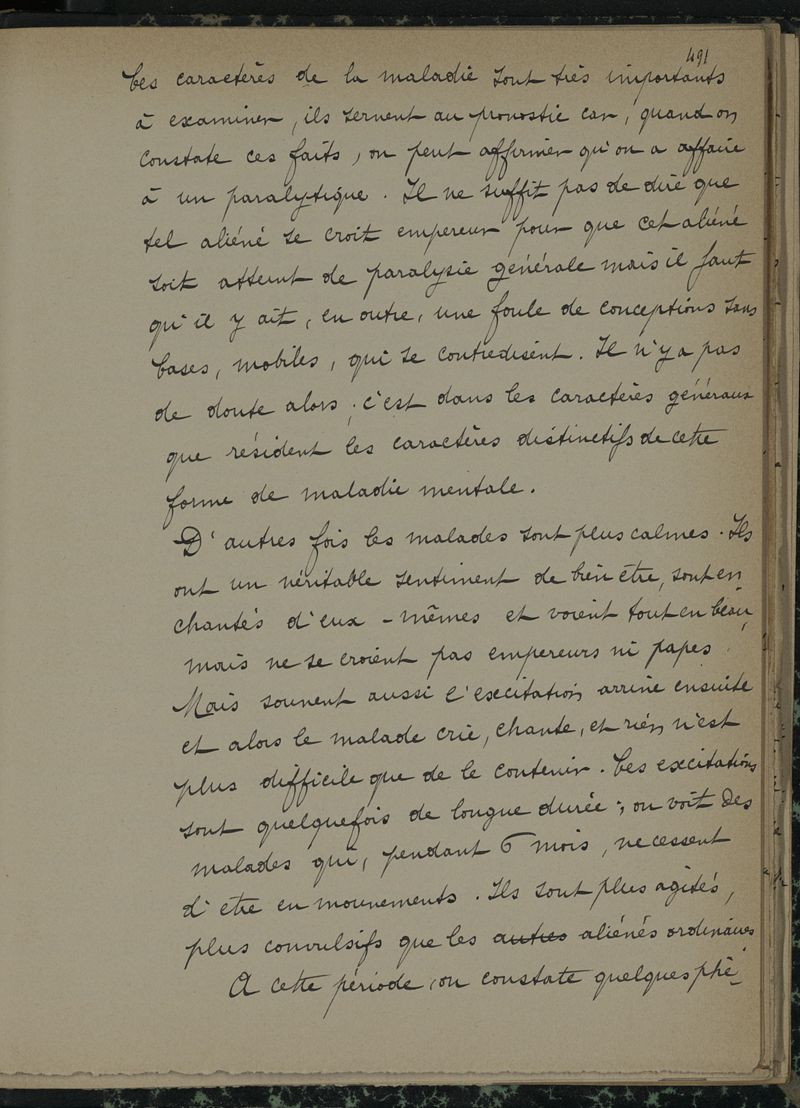 491
Ces caractères de la maladie sont très importants
à examiner, ils servent au pronostic car, quand on
constate ces faits, on peut affirmer qu'on a affaire
à un paralytique. Il ne suffit pas de dire que
tel aliéné se croit empereur pour que cet aliéné
soit atteint de paralysie générale mais il faut
qu'il y ait, en outre, une foule de conceptions sans
bases, mobiles, qui se contredisent. Il n'y a pas
de doute alors ; c'est dans les caractères généraux
que résident les caractères distinctifs de cette
forme de maladie mentale.
D'autres fois les malades sont plus calmes. Ils
ont un véritable sentiment de bien être, sont en
chantés d'eux-mêmes et voient tout en beau,
mais ne se croient pas empereurs ni papes.
Mais souvent aussi l'excitation arrive ensuite
et alors le malade crie, chante, et rien n'est
plus difficile que de le contenir. Ces excitations
sont quelquefois de longue durée ; on voit des
malades qui, pendant 6 mois, ne cessent
d'etre en mouvements. Ils sont plus agités,
plus convulsifs que les autres aliénés ordinaires.
A cette période, on constate quelques phé-